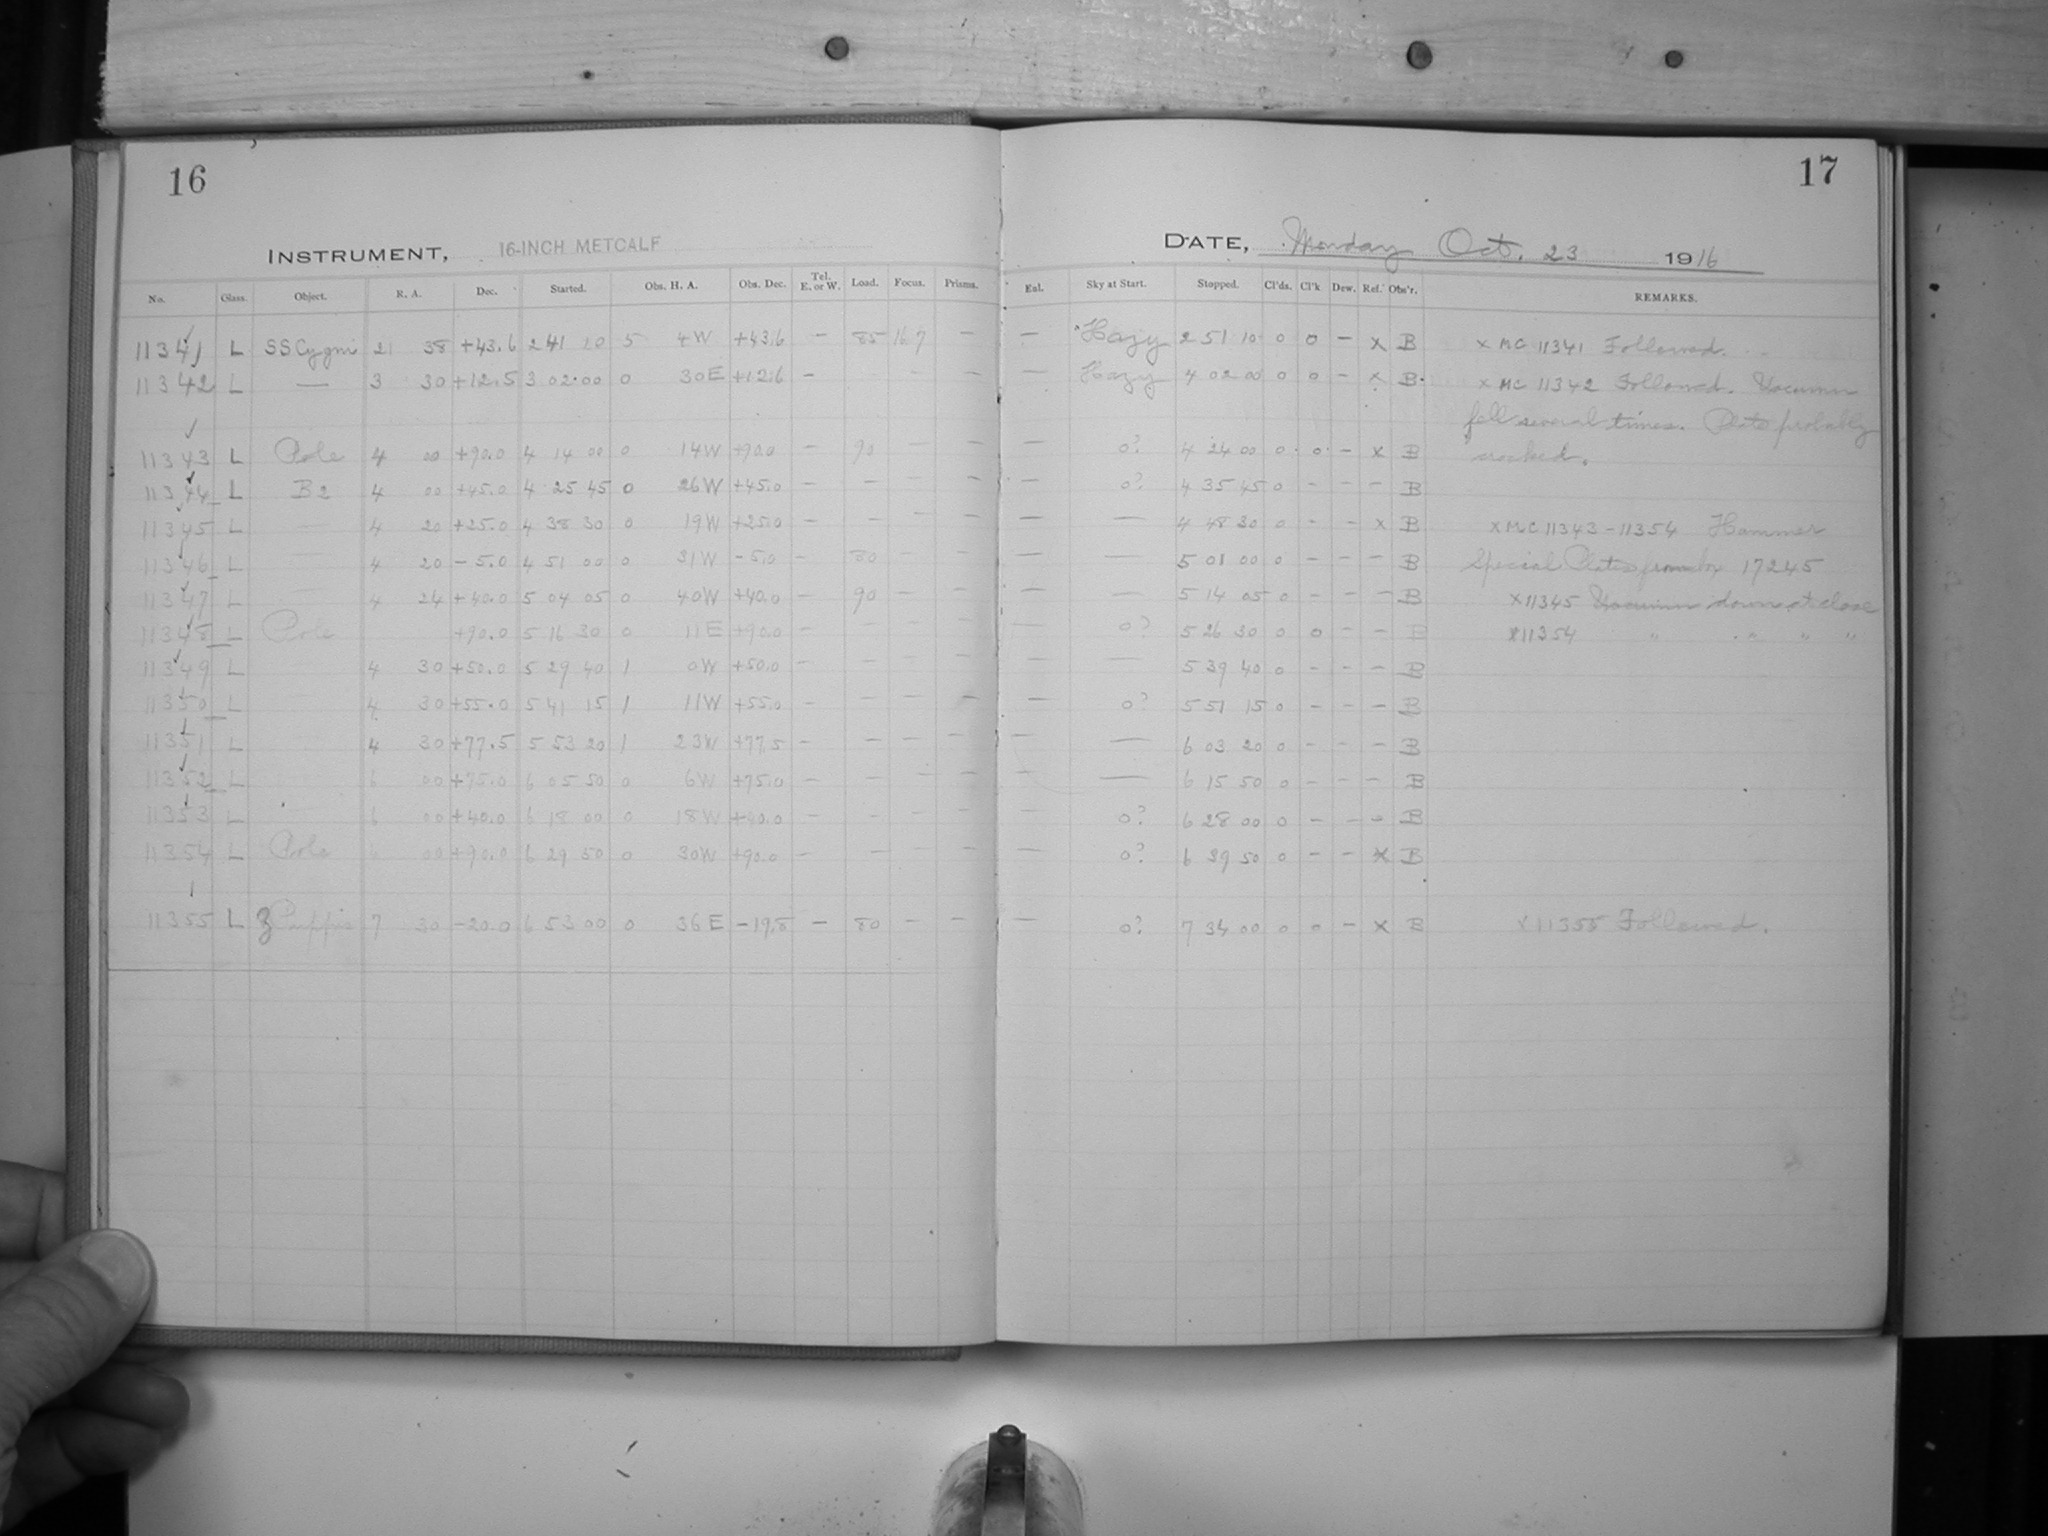 16
17
INSTRUMENT, 16-INCH METCALF
DATE, Monday Oct. 23 1916
No. Glass. Object. R. A. Dec. Started. Obs. H. A. Obs. Dec. Tel. E. or W. Load. Focus. Prisms. Enl. Sky at Start. Stopped. Cl'ds. Cl'k Dew. Ref. Obs'r. REMARKS.
11341 L SS Cygni 21 38 +43.6 2 41 10 5 4W +43.6 — 85 16 7 — — Hazy 2 51 10 0 0 — x B x MC 11341 Followed.
11342 L — 3 30 +12.5 3 02 00 0 30E +12.6 — — Hazy 4 02 00 0 0 — x B x MC 11342 Followed. Vacuum
fell several times. Plate probably
11343 L Pole 4 00 +90.0 4 14 00 0 14W +90.0 — 90 — — — 0? 4 24 00 0 0 — x B
11344 L B2 4 00 +45.0 4 25 45 0 26W +45.0 — — — — — 0? 4 35 45 0 — — — B
11345 L — 4 20 +25.0 4 38 30 0 19W +25.0 — — — — — — 4 48 30 0 — — x B x MC 11343-11354 Hammer
11346 L — 4 20 -5.0 4 51 00 0 31W -5.0 — 80 — — — — 5 01 00 0 — — — B Special Plates from box 17245
11347 L — 4 24 +40.0 5 04 05 0 40W +40.0 — 90 — — — — 5 14 05 0 — — — B x11345 Vacuum down at close
11348 L Pole +90.0 5 16 30 0 11E +90.0 — — — — — 0? 5 26 30 0 0 — — B x11354 " " " "
11349 L — 4 30 +50.0 5 29 40 1 0W +50.0 — — — — — — 5 39 40 0 — — — B
11350 L — 4 30 +55.0 5 41 15 1 11W +55.0 — — — — — 0? 5 51 15 0 — — — B
11351 L — 4 30 +77.5 5 53 20 1 23W +77.5 — — — — — — 6 03 20 0 — — — B
11352 L — 6 00 +75.0 6 05 50 0 6W +75.0 — — — — — — 6 15 50 0 — — — B
11353 L — 6 00 +40.0 6 18 00 0 18W +40.0 — — — — — 0? 6 28 00 0 — — — B
11354 L Pole 6 00 +90.0 6 29 50 0 30W +90.0 — — — — — 0? 6 39 50 0 — — x B
11355 L 3 Puppis 7 30 -20.0 6 53 00 0 36E -19.8 — 80 — — — 0? 7 34 00 0 0 — x B x11355 Followed.